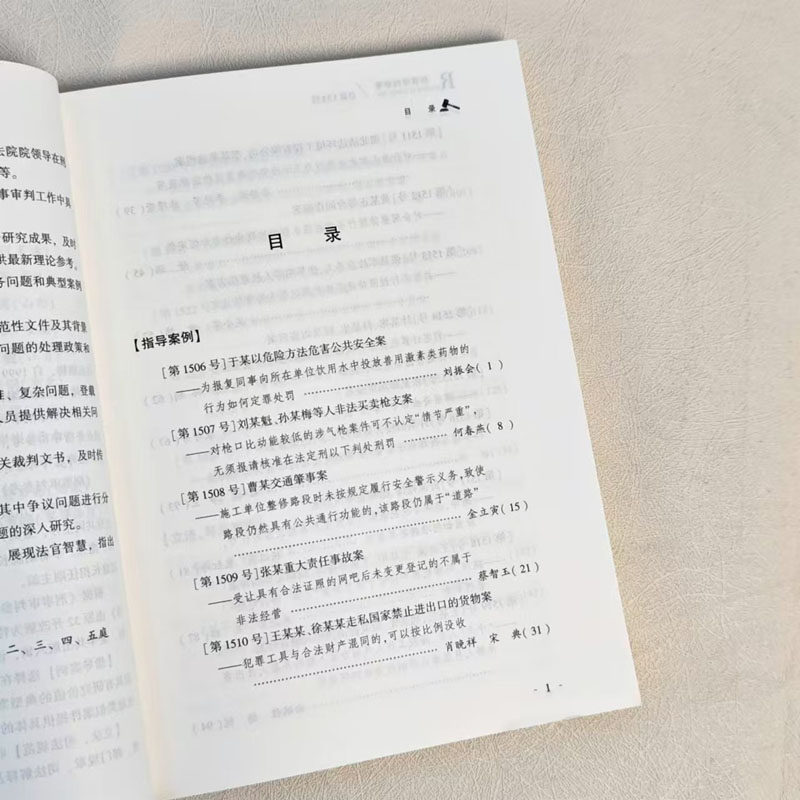 法院院领导在刑
等。
事审判工作中具
研究成果，及时
供最新理论参考。
务问题和典型案例
范性文件及其背景
问题的处理政策和
、复杂问题，登载
人员提供解决相关问
关裁判文书，及时传
其中争议问题进行分
题的深入研究。
展现法官智慧，指出
二、三、四、五庭
目 录
目 录
【指导案例】
［第1506号］于某以危险方法危害公共安全案
——为报复同事向所在单位饮用水中投放兽用激素类药物的
行为如何定罪处罚 ………………… 刘振会（1）
［第1507号］刘某魁、孙某梅等人非法买卖枪支案
——对枪口比动能较低的涉气枪案件可不认定“情节严重”，
无须报请核准在法定刑以下判处刑罚 ………… 何春燕（8）
［第1508号］曹某交通肇事案
——施工单位整修路段时未按规定履行安全警示义务，致使
路段仍然具有公共通行功能的，该路段仍属于“道路”
………………………………… 金立寅（15）
［第1509号］张某重大责任事故案
——受让具有合法证照的网吧后未变更登记的不属于
非法经营 ………………………… 蔡智玉（21）
［第1510号］王某某、徐某某走私国家禁止进出口的货物案
——犯罪工具与合法财产混同的，可以按比例没收
………………………… 肖晚祥 宋 典（31）
- 1 -